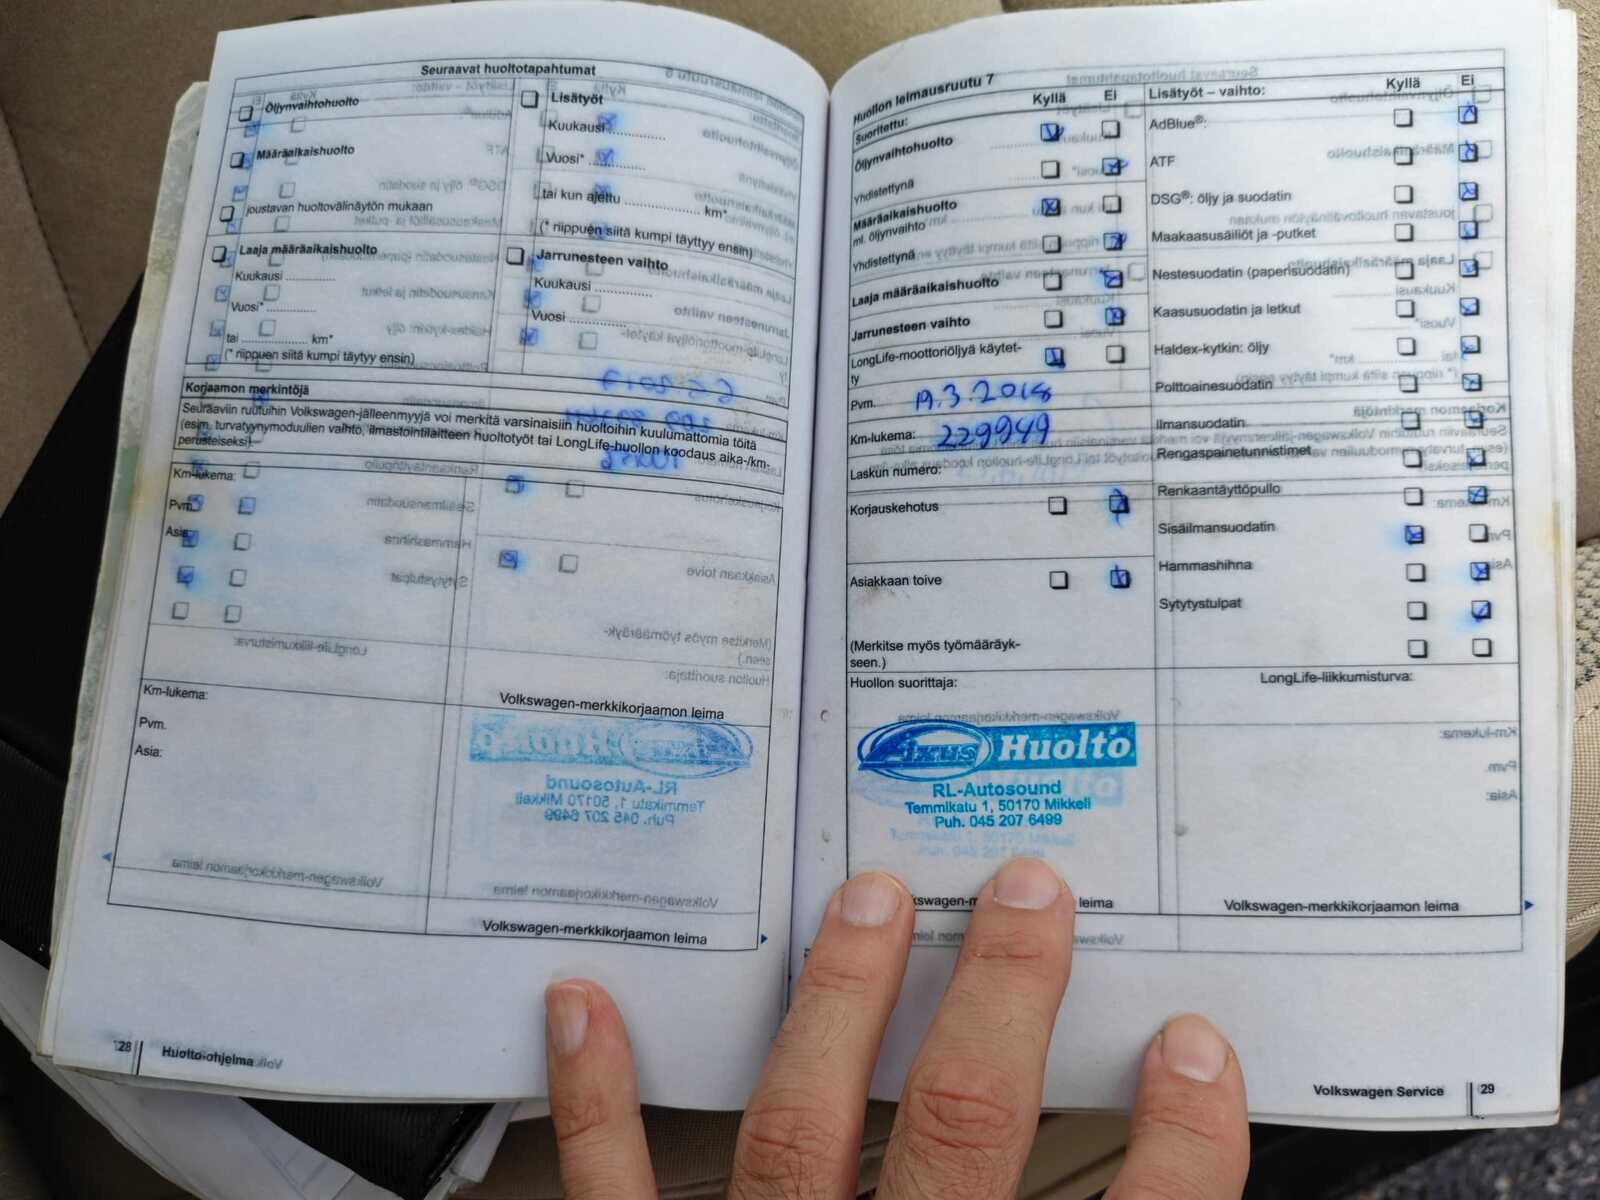 Seuraavat huoltotapahtumat
Öljynvaihtohuolto
Määräaikaishuolto
joustavan huoltovälinäytön mukaan
Laaja määräaikaishuolto
Kuukausi ............
Vuosi* ............
tai ................ km*
(* riippuen siitä kumpi täytyy ensin)
Lisätyöt
Kuukausi ..............
Vuosi* ..............
tai kun ajettu ................... km*
(* riippuen siitä kumpi täyttyy ensin)
Jarrunesteen vaihto
Kuukausi ..............
Vuosi ..............
Korjaamon merkintöjä
Seuraaviin ruutuihin Volkswagen-jälleenmyyjä voi merkitä varsinaisiin huoltoihin kuulumattomia töitä
(esim. turvatyynymoduulien vaihto, ilmastointilaitteen huoltotyöt tai LongLife-huollon koodaus aika-/km-
perusteiseksi).
Km-lukema:
Pvm.
Asia:
Volkswagen-merkkikorjaamon leima
Km-lukema:
Pvm.
Asia:
Volkswagen-merkkikorjaamon leima
28 Huolto-ohjelma
Huollon leimausruutu 7
Suoritettu:
Kyllä Ei
Öljynvaihtohuolto
Yhdistettynä
Määräaikaishuolto
ml. öljynvaihto
Yhdistettynä
Laaja määräaikaishuolto
Jarrunesteen vaihto
LongLife-moottoriöljyä käytet-
ty
Pvm. 19.3.2018
Km-lukema: 229949
Laskun numero:
Korjauskehotus
Asiakkaan toive
(Merkitse myös työmääräyk-
seen.)
Huollon suorittaja:
AKUS Huolto
RL-Autosound
Temmikatu 1, 50170 Mikkeli
Puh. 045 207 6499
leima
Lisätyöt – vaihto:
Kyllä Ei
AdBlue®:
ATF
DSG®: öljy ja suodatin
Maakaasusäiliöt ja -putket
Nestesuodatin (paperisuodatin)
Kaasusuodatin ja letkut
Haldex-kytkin: öljy
Polttoainesuodatin
Ilmansuodatin
Rengaspainetunnistimet
Renkaantäyttöpullo
Sisäilmansuodatin
Hammashihna
Sytytystulpat
LongLife-liikkumisturva:
Volkswagen-merkkikorjaamon leima
Volkswagen Service 29